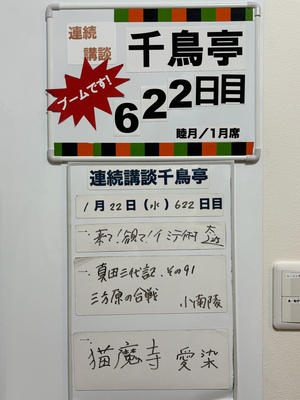 連続
講談
千鳥亭
ブームです!
622日目
睦月/1月席
連続講談千鳥亭
1月22日(水)622日目
一. 来て!観て!
一. 真田三代記、その91
三方原の合戦 小南陵
一. 猫魔寺 愛染